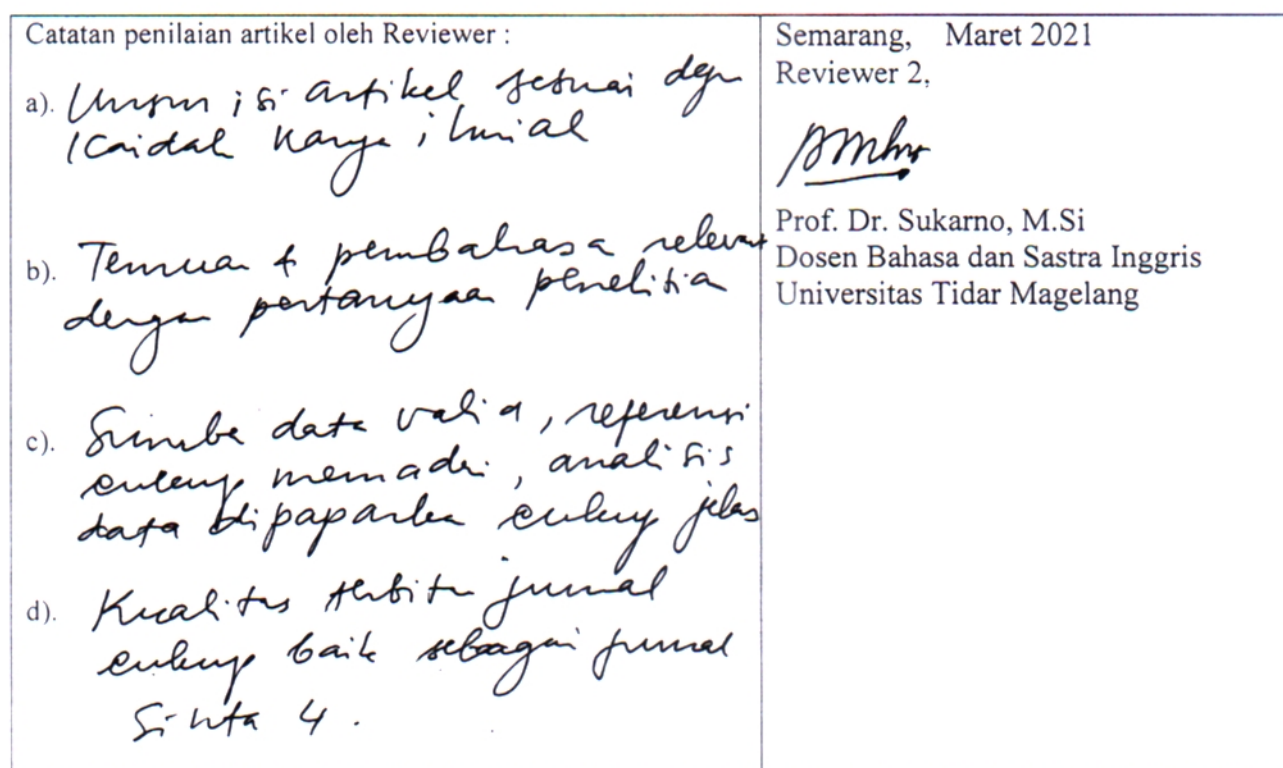 Catatan penilaian artikel oleh Reviewer :
a). Unsur isi artikel sesuai dgn
kaidah karya ilmiah
b). Temuan & pembahasa relevant
dengan pertanyaan penelitian
c). Sumber data valid, referensi
cukup memadai, analisis
data dipaparkan cukup jelas
d). Kualitas terbitan jurnal
cukup baik sebagai jurnal
Sinta 4.
Semarang, Maret 2021
Reviewer 2,
Prof. Dr. Sukarno, M.Si
Dosen Bahasa dan Sastra Inggris
Universitas Tidar Magelang